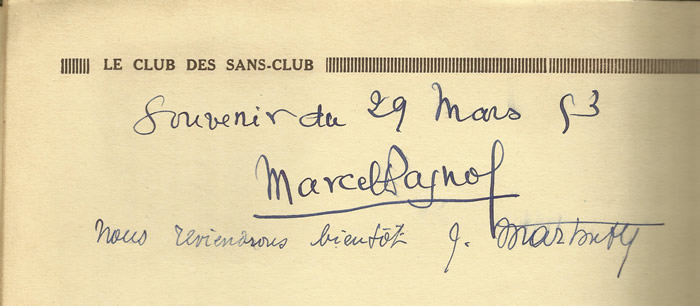 LE CLUB DES SANS-CLUB
Souvenir du 29 Mars 53
Marcel Pagnol
Nous reviendrons bientôt J.